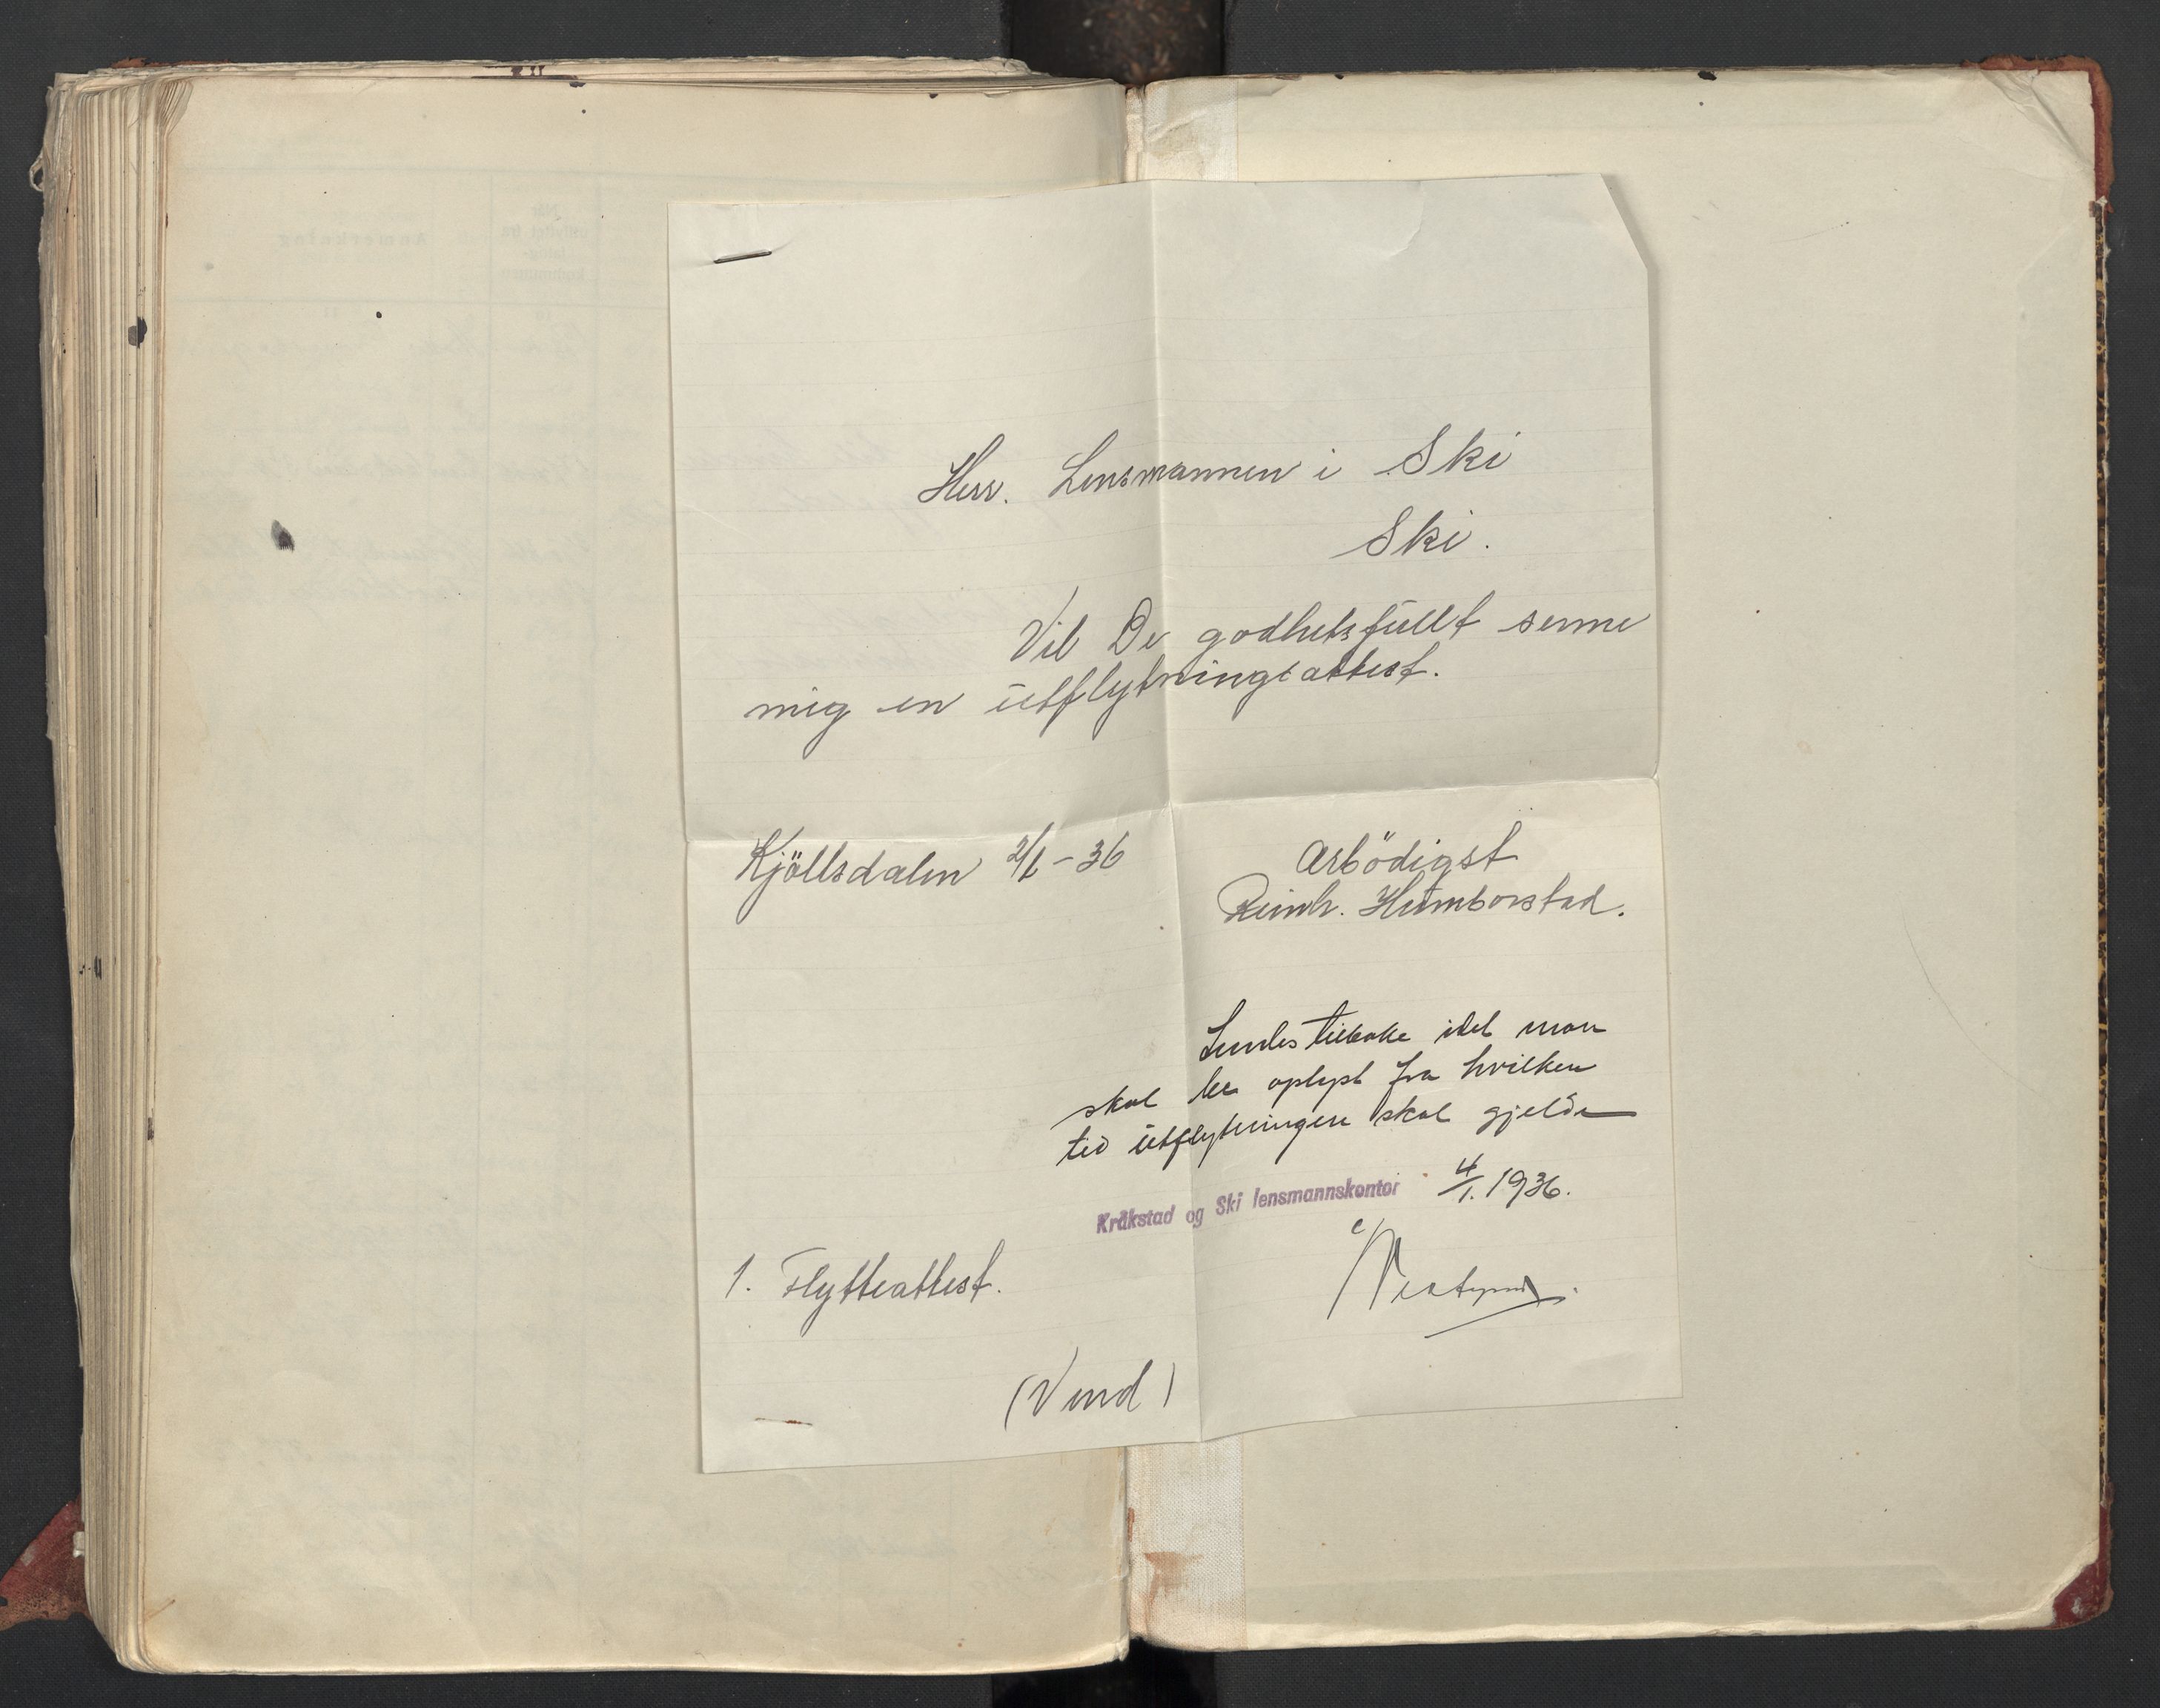 Herr. Lensmannen i Ski
Ski.
Vil De godhetsfullt senne
mig en utflytningsattest.
Kjöllsdalen 2/1-36
Arbödigst
Reinh. Humborstad.
Sendes tilbake idet man
skal be oplyst fra hvilken
tid utflytningen skal gjelde
Kråkstad og Ski lensmannskontor 4/1. 1936.
1. Flytteattest.
(Vend)